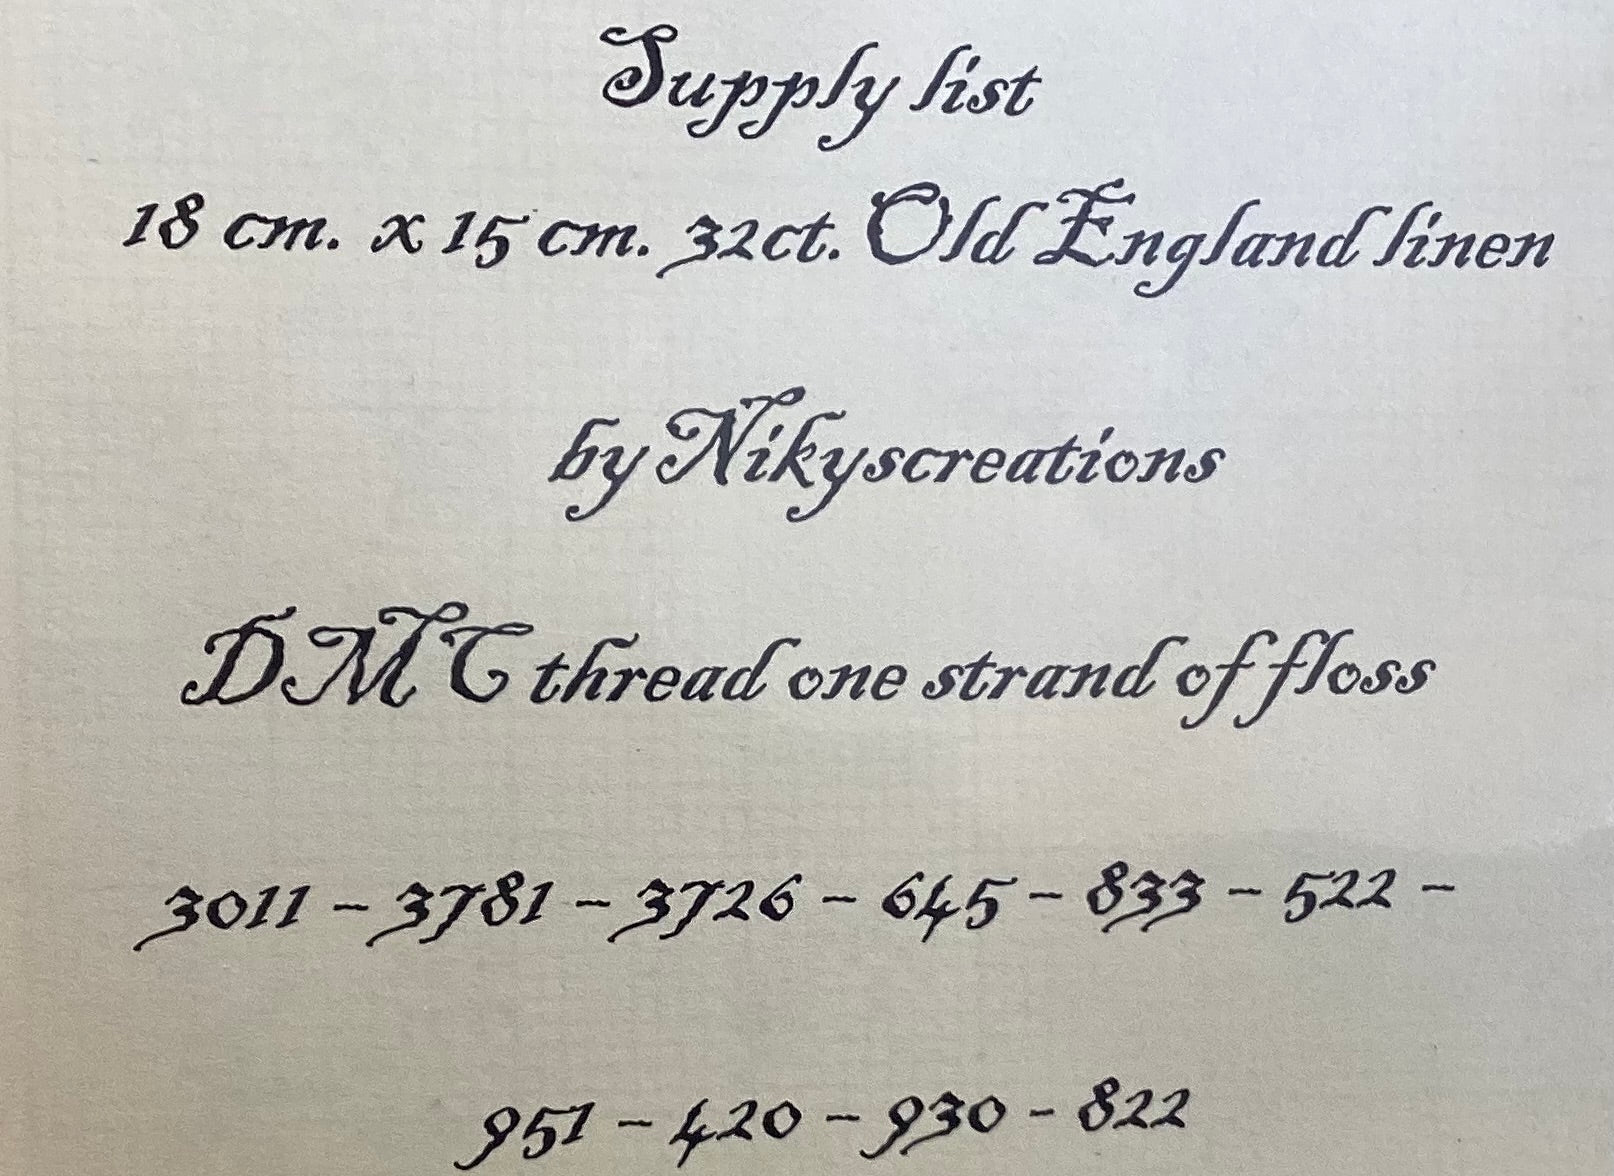 Supply list
18 cm. x 15 cm. 32ct. Old England linen
by Nikyscreations
DMC thread one strand of floss
3011 - 3781 - 3726 - 645 - 833 - 522 -
951 - 420 - 930 - 822